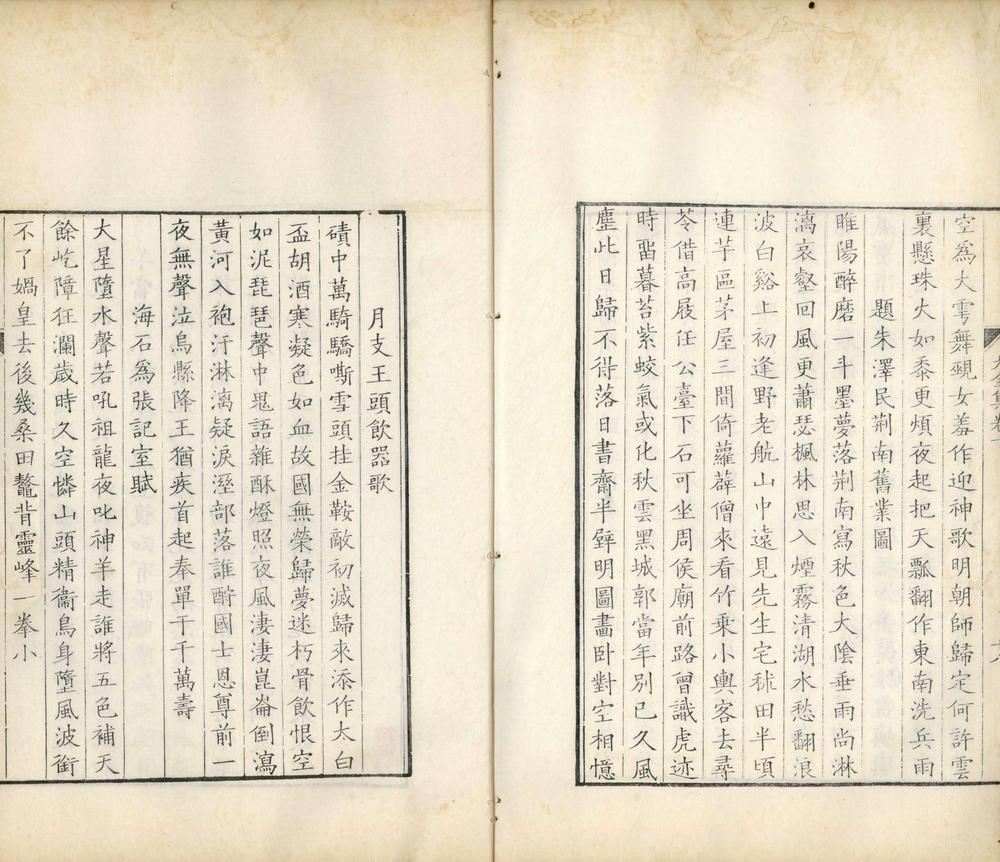 空爲大雩舞覡女羞作迎神歌明朝師歸定何許雲
裏懸珠大如黍更煩夜起把天瓢翻作東南洗兵雨
題朱澤民荆南舊業圖
睢陽醉磨一斗墨夢落荆南寫秋色大陰垂雨尚淋
漓哀壑回風更蕭瑟楓林思入煙霧清湖水愁翻浪
波白谿上初逢野老航山中遠見先生宅秫田半頃
連芋區茅屋三間倚蘿薜僧來看竹乗小輿客去尋
苓借高屐任公臺下石可坐周侯廟前路曾識虎迹
時畱暮苔紫蛟氣或化秋雲黑城郭當年別已久風
塵此日歸不得落日書齋半壁明圖畫卧對空相憶
月支王頭飲器歌
磧中萬騎驕嘶雪頭挂金鞍敵初滅歸來添作太白
盃胡酒寒凝色如血故國無榮歸夢迷朽骨飲恨空
如泥琵琶聲中鬼語雜酥燈照夜風淒淒崑崙倒瀉
黃河入袍汙淋漓疑淚溼部落誰酧國士恩尊前一
夜無聲泣烏縣降王猶疾首起奉單于千萬壽
海石爲張記室賦
大星墮水聲若吼祖龍夜叱神羊走誰將五色補天
餘屹障狂瀾歲時久空憐山頭精衞鳥身墮風波銜
不了媧皇去後幾桑田鼇背靈峰一拳小